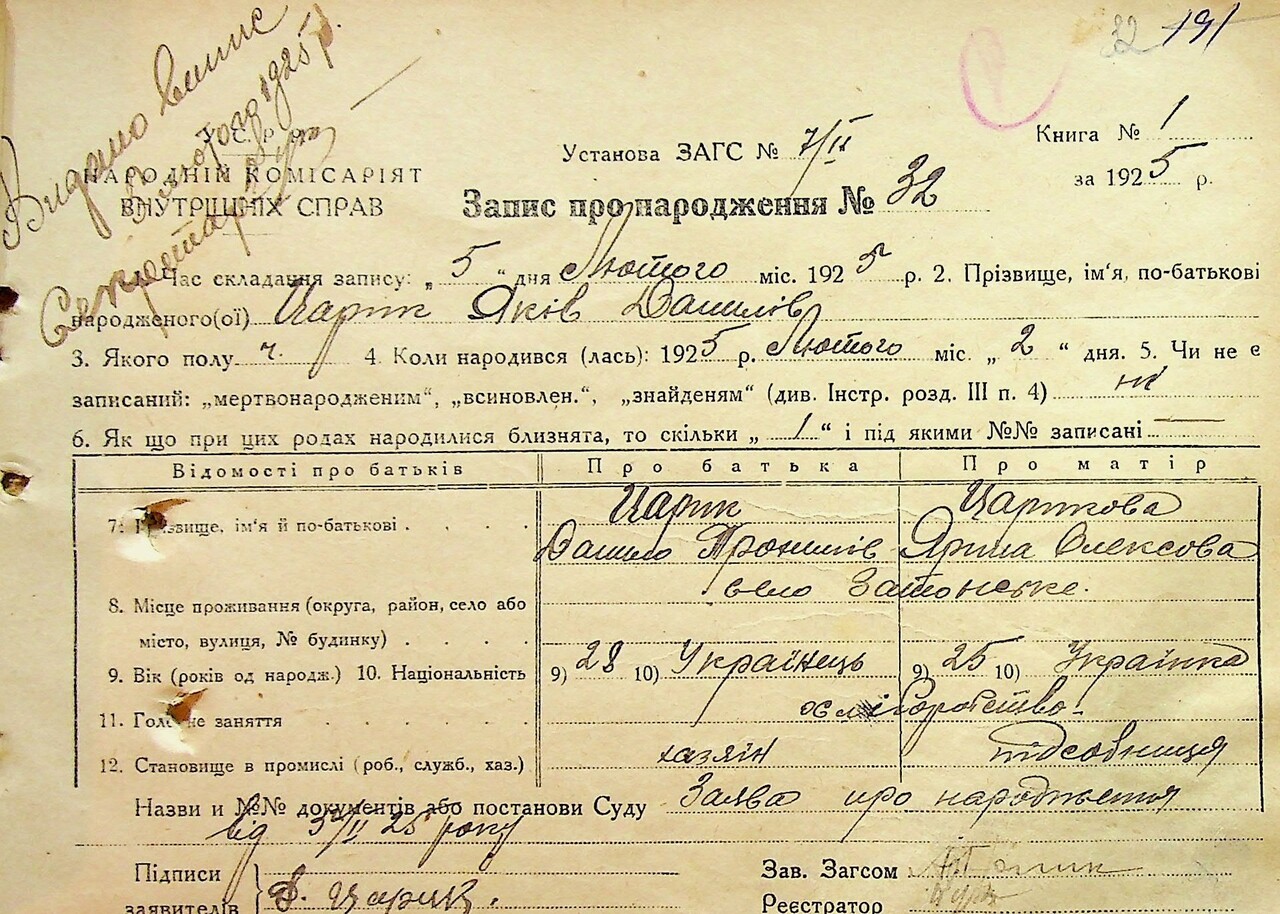 32 191
Видано випис
5 лютого 1925 р.
Секретар
У. С. Р. Р.
НАРОДНІЙ КОМІСАРІЯТ
ВНУТРІШНІХ СПРАВ
Установа ЗАГС № 7/II
Книга № 1
за 1925 р.
Запис про народження № 32
Час складання запису: „ 5 “ дня Лютого міс. 1925 р. 2. Прізвище, ім'я, по-батькові
народженого(ої) Царик Яків Данилів
3. Якого полу ч. 4. Коли народився (лась): 1925 р. Лютого міс. „ 2 “ дня. 5. Чи не є
записаний: „мертвонародженим“, „всиновлен.“, „знайденям“ (див. Інстр. розд. III п. 4) ні
6. Як що при цих родах народилися близнята, то скільки „ 1 “ і під якими №№ записані —
Відомості про батьків Про батька Про матір
7. Прізвище, ім'я й по-батькові . . . . Царик Царикова
Данило Арина Олексова
8. Місце проживання (округа, район, село або село Затонське.
місто, вулиця, № будинку) . . . .
9. Вік (років од народж.) 10. Національність 9) 28 10) Українець 9) 25 10) Українка
11. Головне заняття . . . . .
12. Становище в промислі (роб., служб., хаз.) хазяїн підсобниця
Назви и №№ документів або постанови Суду Заява про народження
від 5/II 25 року
Підписи
заявителів } Д. Царик.
Зав. Загсом
Реєстратор